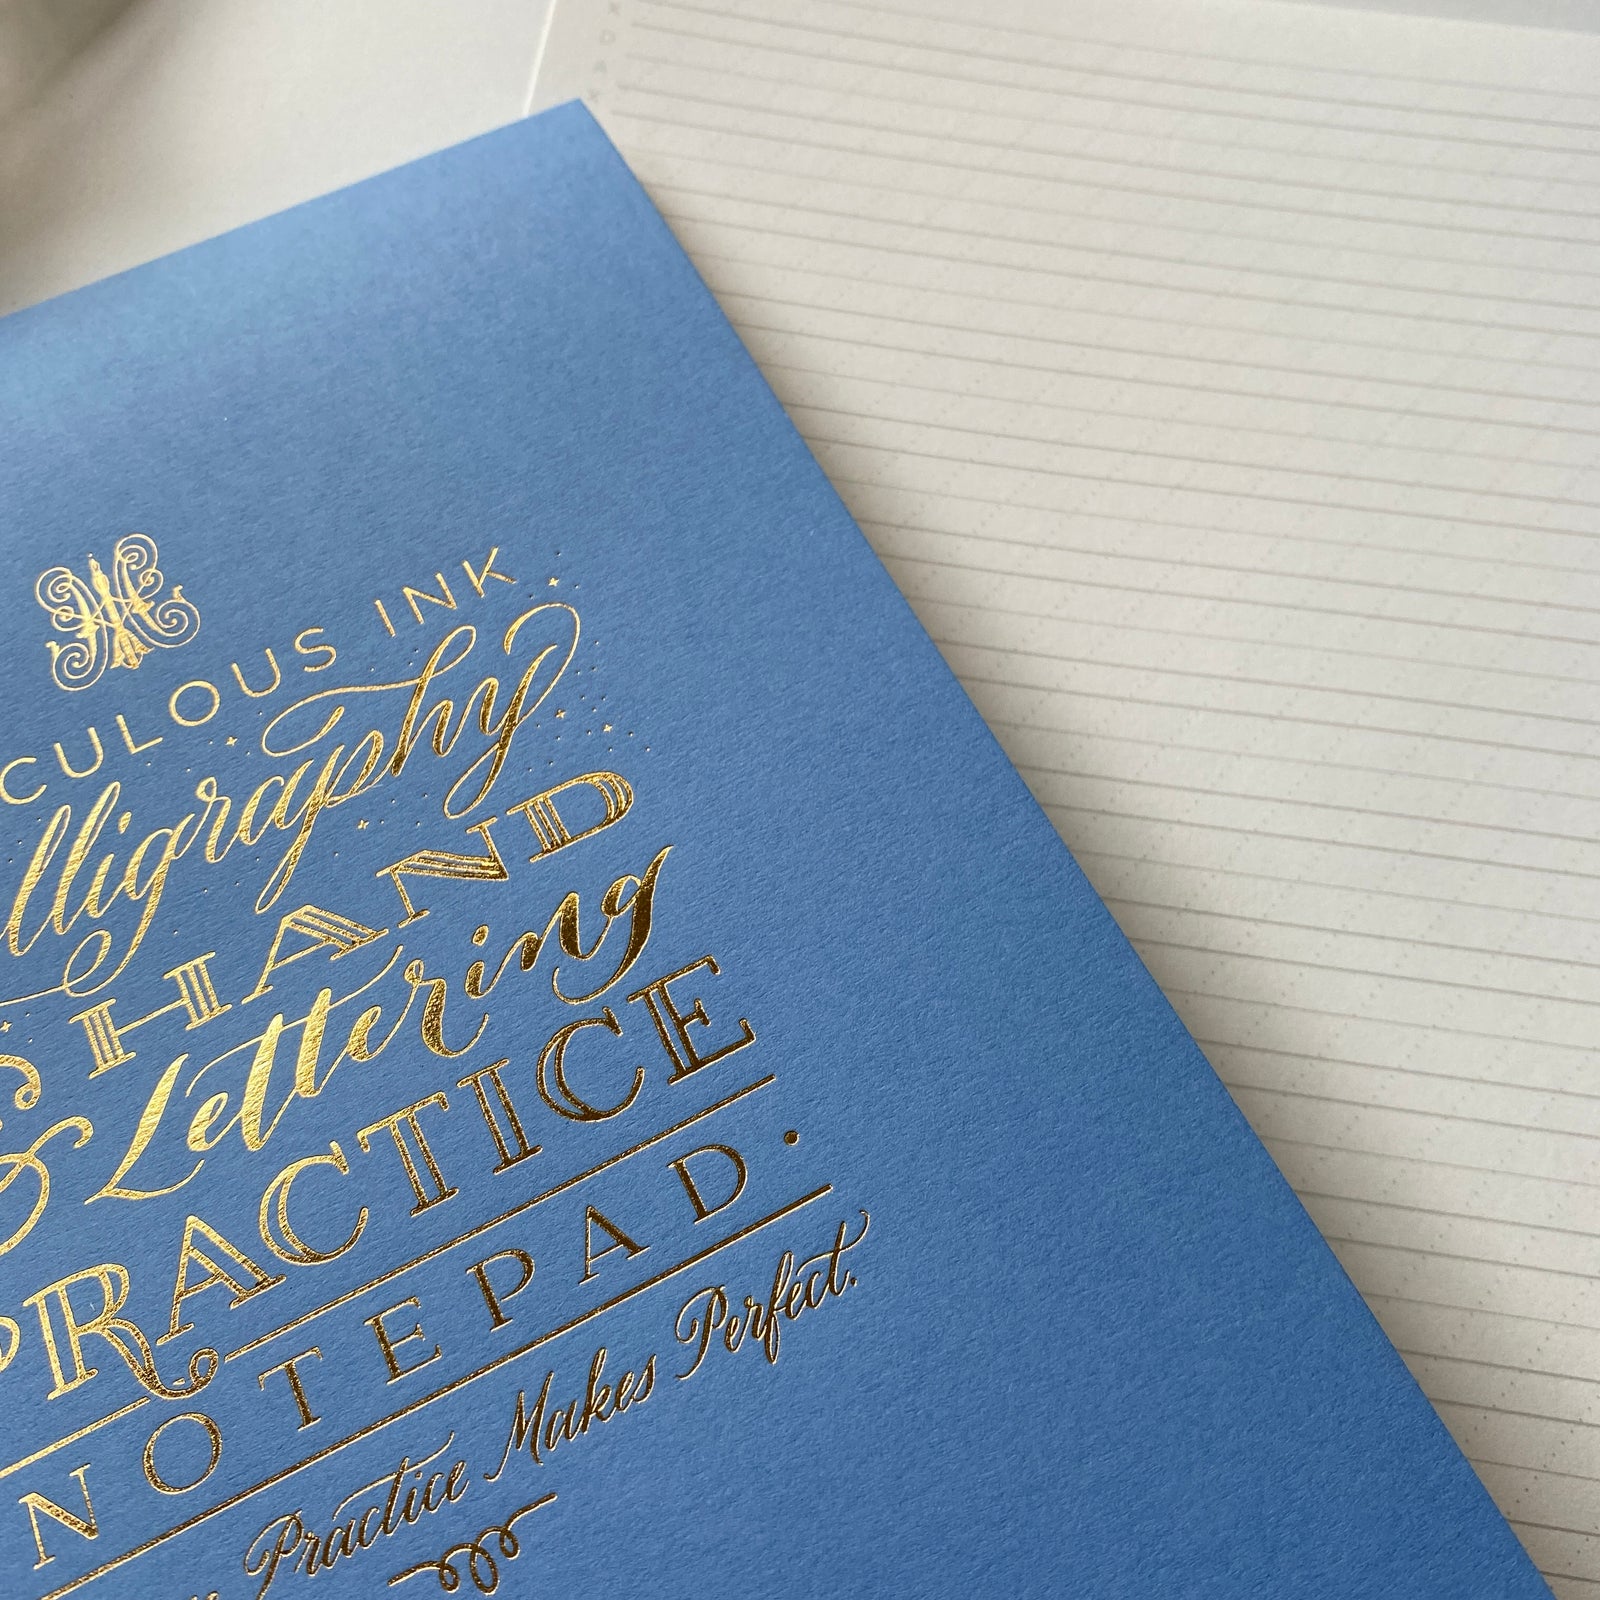 CULOUS INK
alligraphy
HAND
& Lettering
PRACTICE
NOTEPAD.
Practice Makes Perfect.